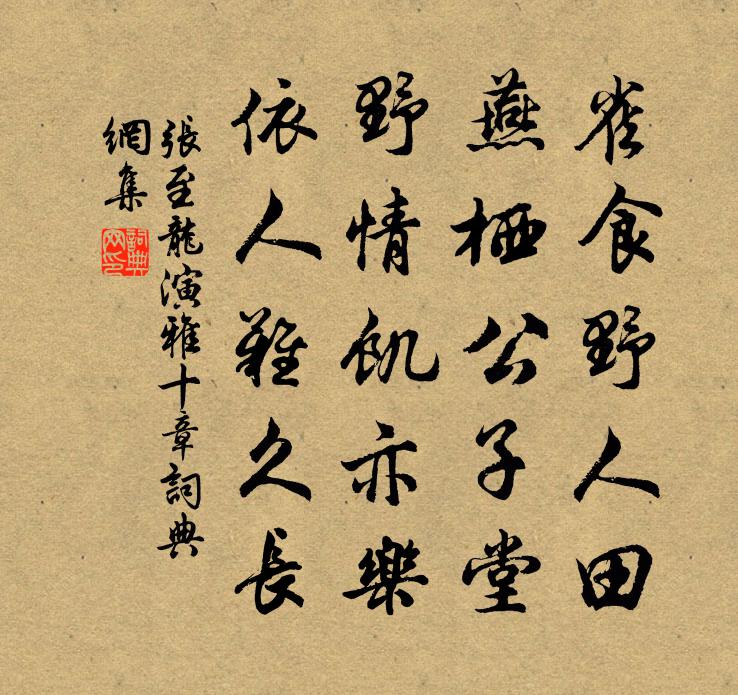 雀食野人田
燕栖公子堂
野情飢亦樂
依人難久長
張至龍演雅十章詞典
網集
詞典網印